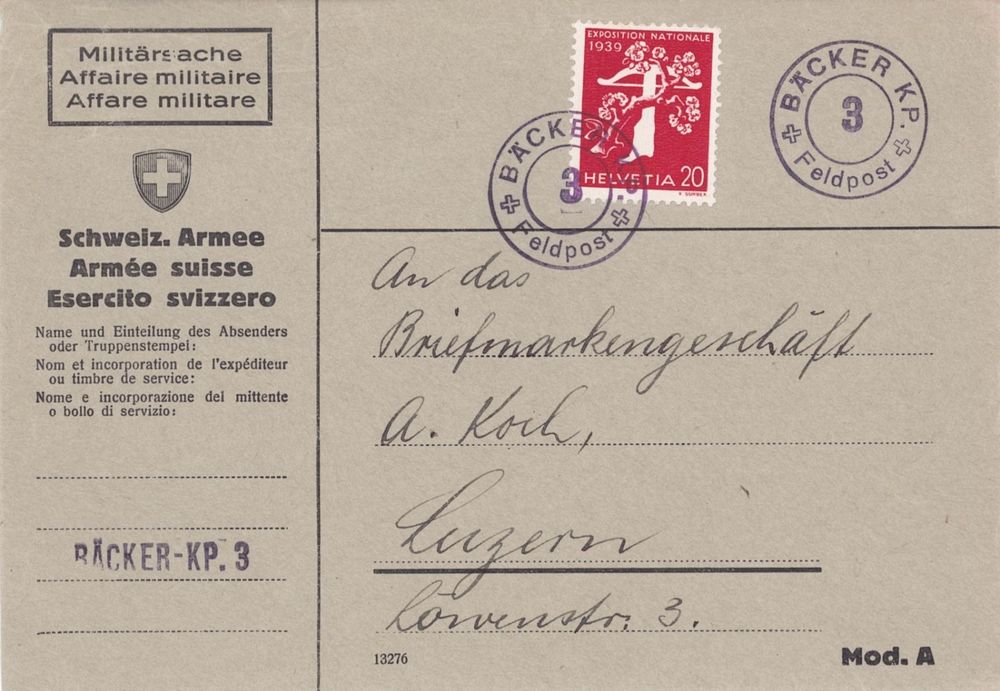 Militärsache
Affaire militaire
Affare militare
Schweiz. Armee
Armée suisse
Esercito svizzero
Name und Einteilung des Absenders
oder Truppenstempel:
Nom et incorporation de l'expéditeur
ou timbre de service:
Nome e incorporazione del mittente
o bollo di servizio:
BÄCKER-KP. 3
EXPOSITION NATIONALE
1939
HELVETIA 20
BÄCKER KP.
3
Feldpost
BÄCKER KP.
3
Feldpost
An das
Briefmarkengeschäft
A. Koch,
Luzern
Löwenstr. 3.
13276
Mod. A